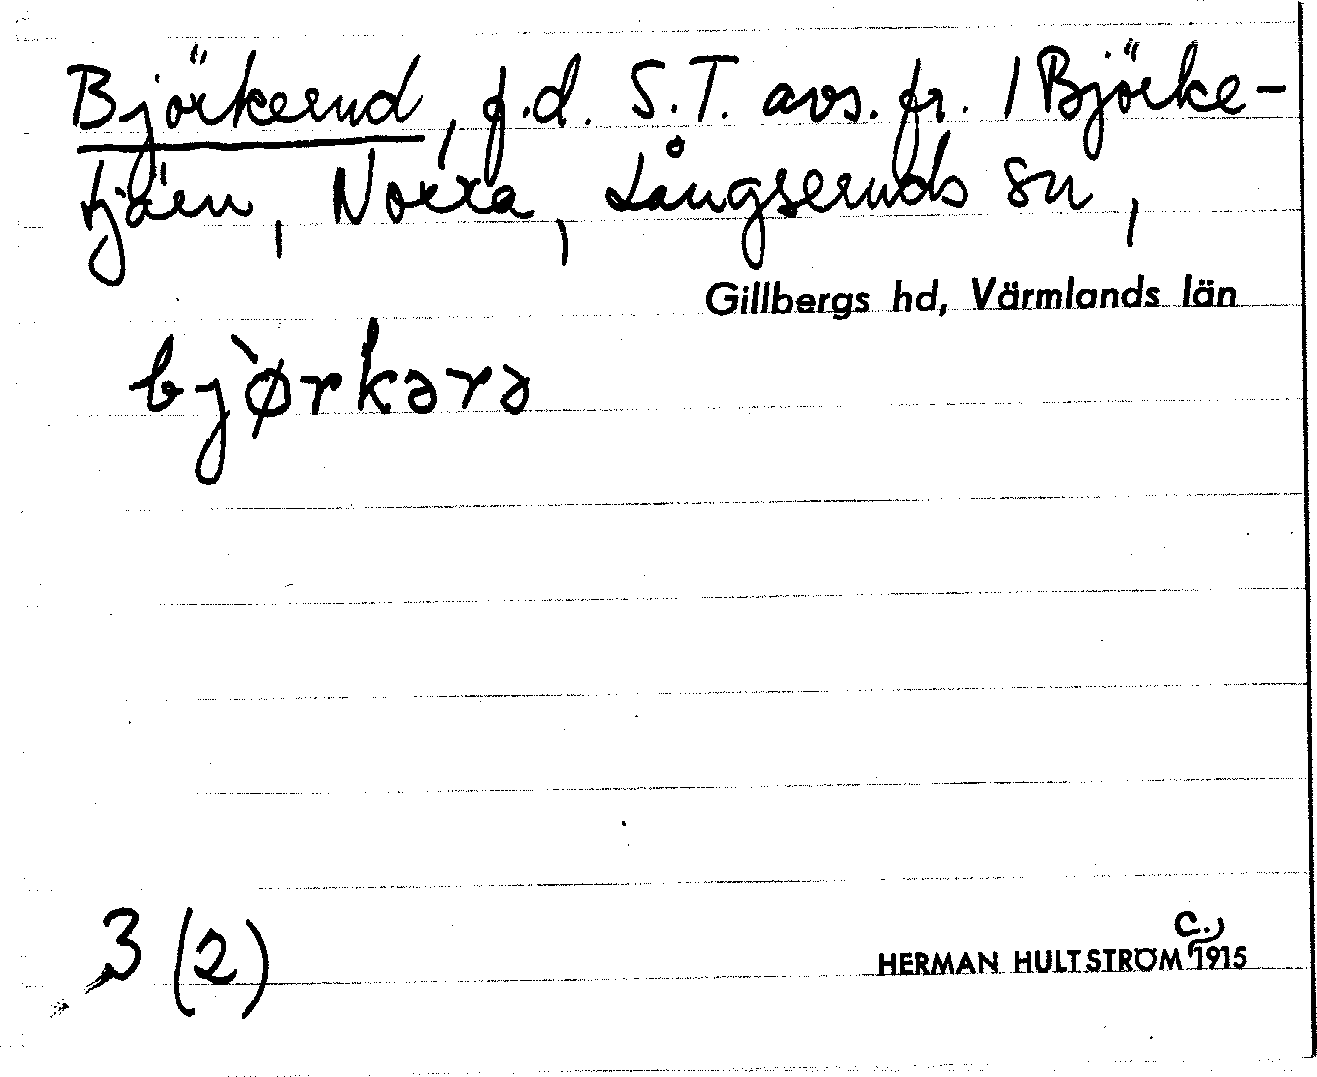 Björkerud, f.d. S.T. avs. fr. 1 Björke-
tjärn, Norra, Långseruds sn,
Gillbergs hd, Värmlands län
bj`ørkərə
3 (2)
HERMAN HULTSTRÖM c. 1915